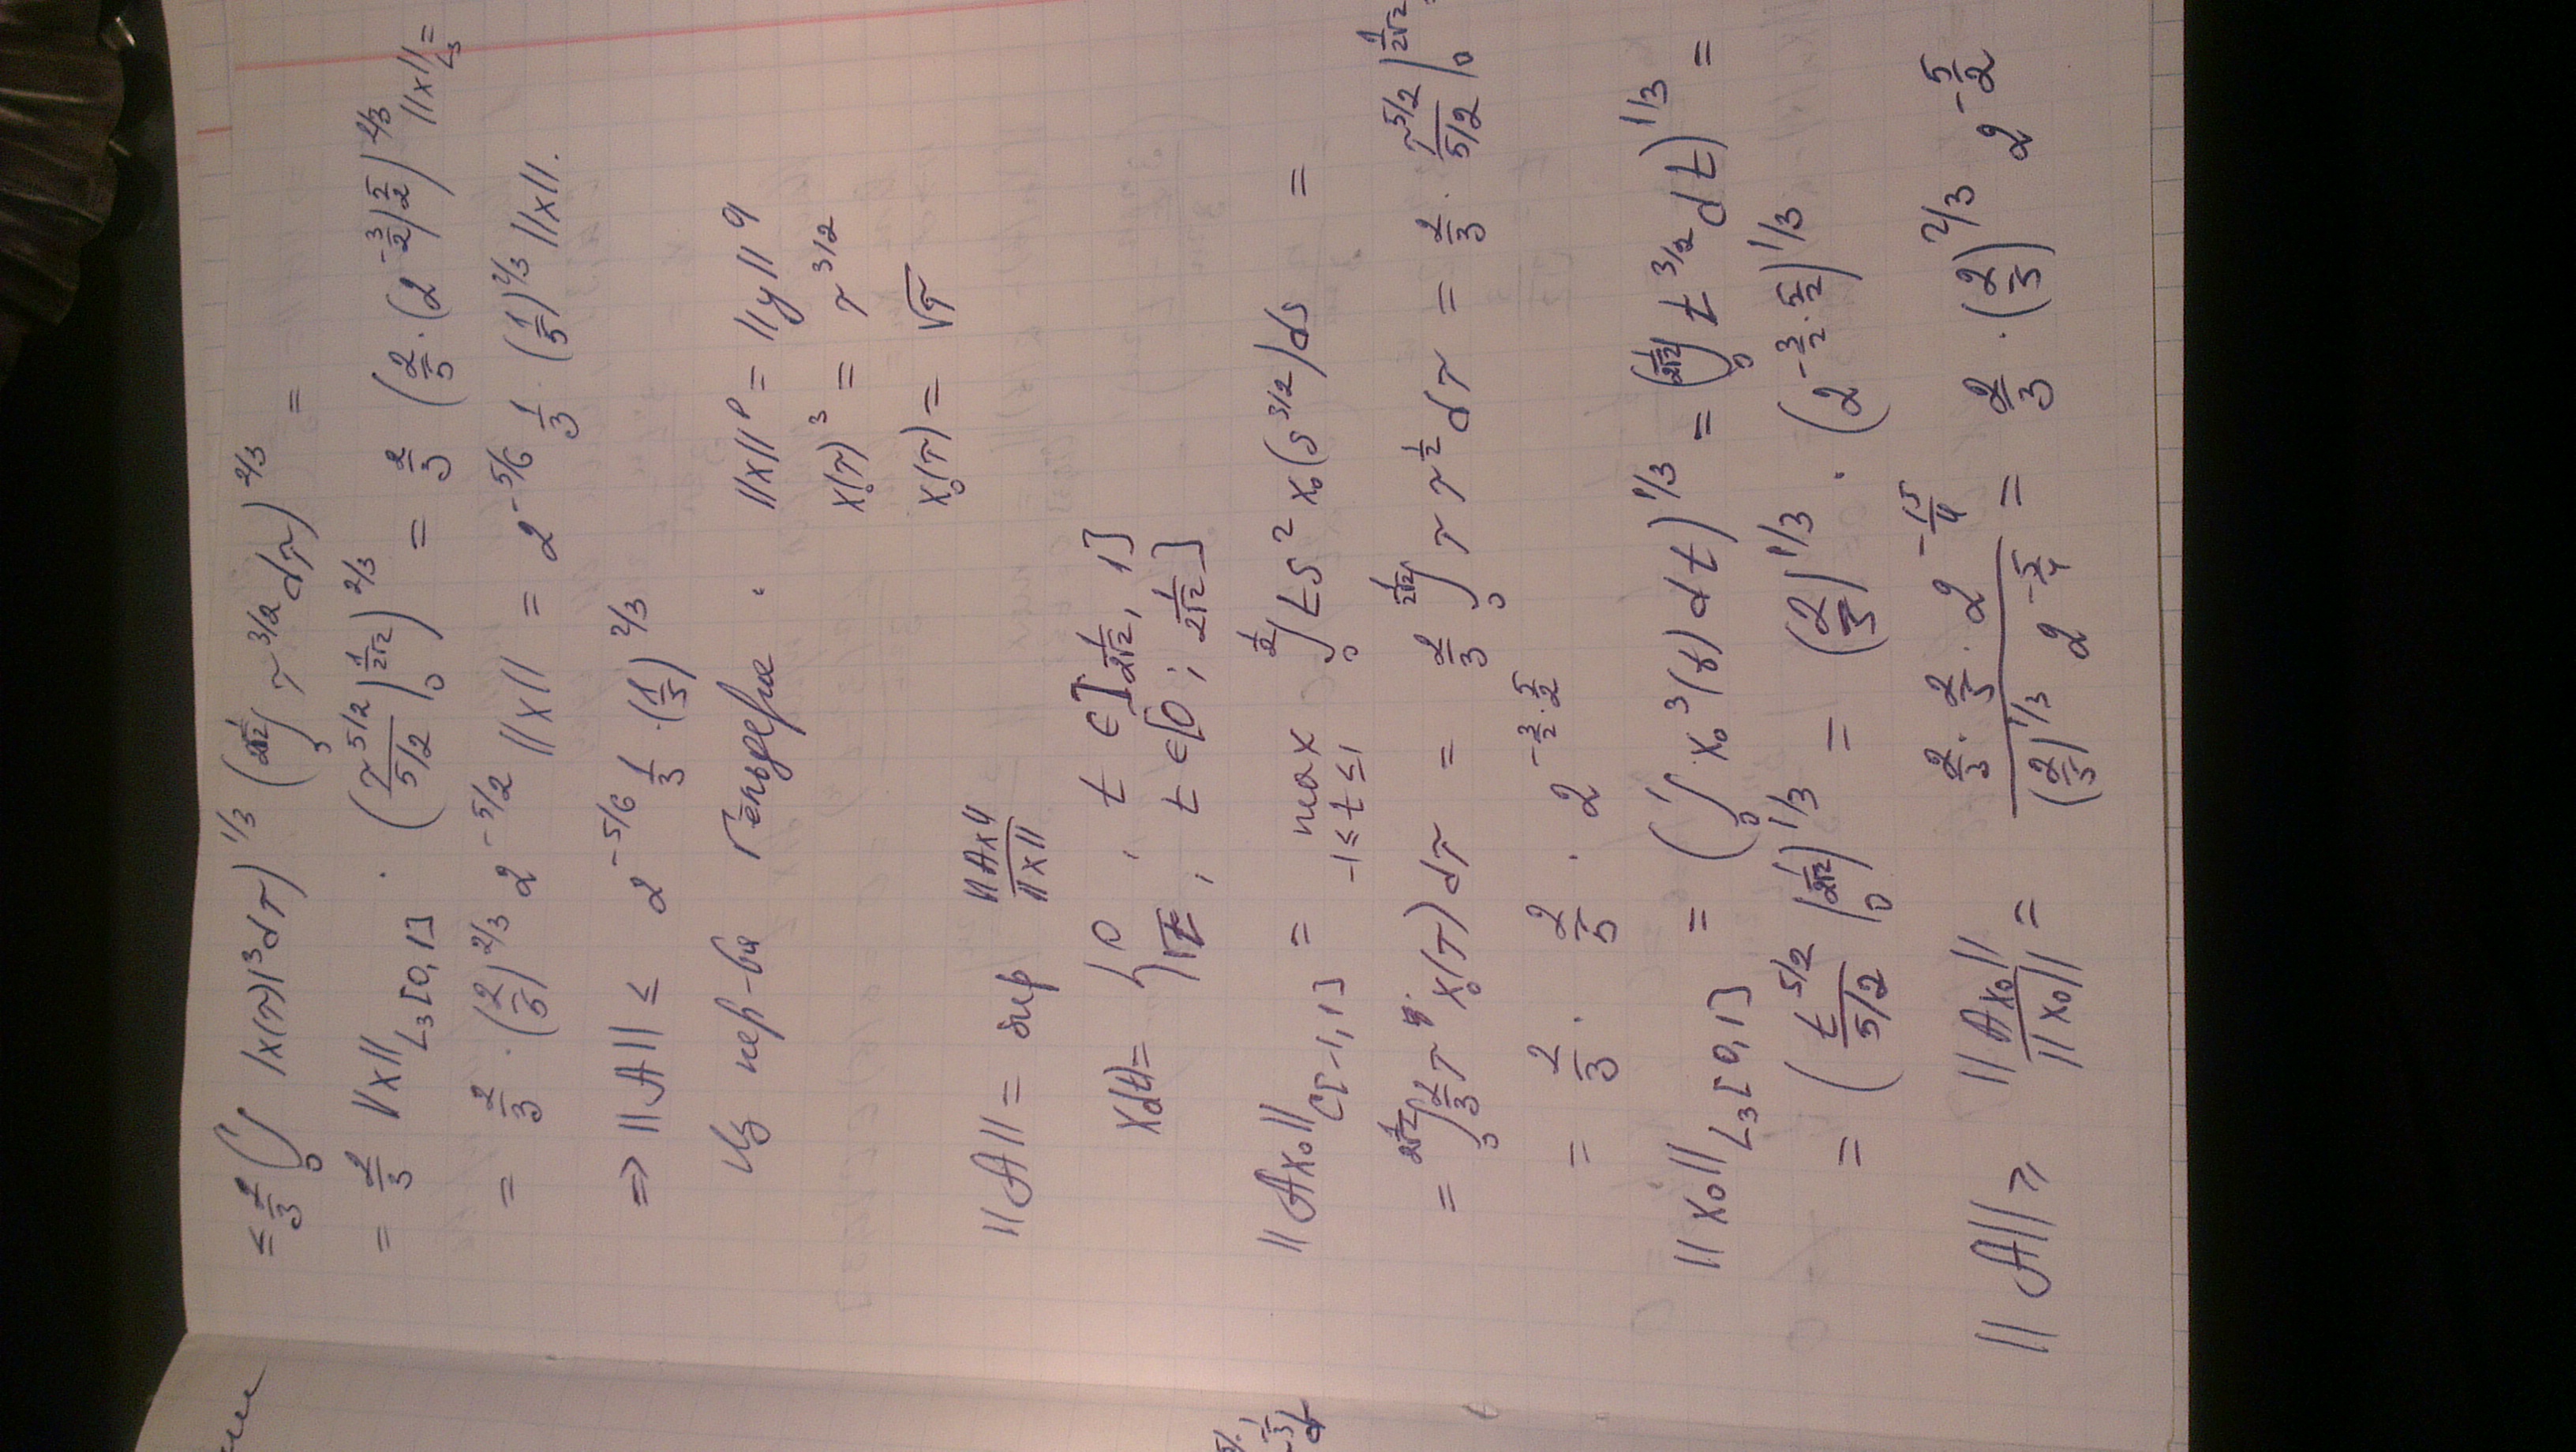 ≤ 2/3 (∫₀¹ |x(τ)|³dτ)^1/3 (∫₀^{1/2√2} τ^3/2 dτ)^2/3 =
= 2/3 ||x||_{L₃[0,1]} · (τ^5/2 / 5/2 |₀^{1/2√2})^2/3 = 2/3 (2/5 · (2^{-3/2})^{5/2})^2/3 ||x||_{L₃} =
= 2/3 · (2/5)^2/3 2^{-5/2} ||x|| = 2^{-5/6} 1/3 · (1/5)^2/3 ||x||.
⇒ ||A|| ≤ 2^{-5/6} 1/3 · (1/5)^2/3
Из нер-ва Гельдера . ||x||^p = ||y||^q
x₀(τ)³ = τ^3/2
x₀(τ) = √τ
||A|| = sup ||Ax|| / ||x||
x₀(t) = { 0 , t ∈ ]1/2√2, 1]
√t , t ∈ [0; 1/2√2]
||Ax₀||_{C[-1,1]} = max_{-1≤t≤1} ∫₀^{1/2} ts² x₀(s^3/2) ds =
= ∫₀^{1/2√2} 2/3 τ x₀(τ) dτ = 2/3 ∫₀^{1/2√2} τ τ^{1/2} dτ = 2/3 · τ^5/2 / 5/2 |₀^{1/2√2} =
= 2/3 · 2/5 · 2^{-3/2 · 5/2}
||x₀||_{L₃[0,1]} = (∫₀¹ x₀³(t) dt)^1/3 = (∫₀^{1/2√2} t^3/2 dt)^1/3 =
= (t^5/2 / 5/2 |₀^{1/2√2})^1/3 = (2/5)^1/3 · (2^{-3/2 · 5/2})^1/3
||A|| ≥ ||Ax₀|| / ||x₀|| = 2/3 · 2/5 · 2^{-15/4} / (2/5)^1/3 2^{-5/4} = 2/3 · (2/5)^2/3 2^{-5/2}